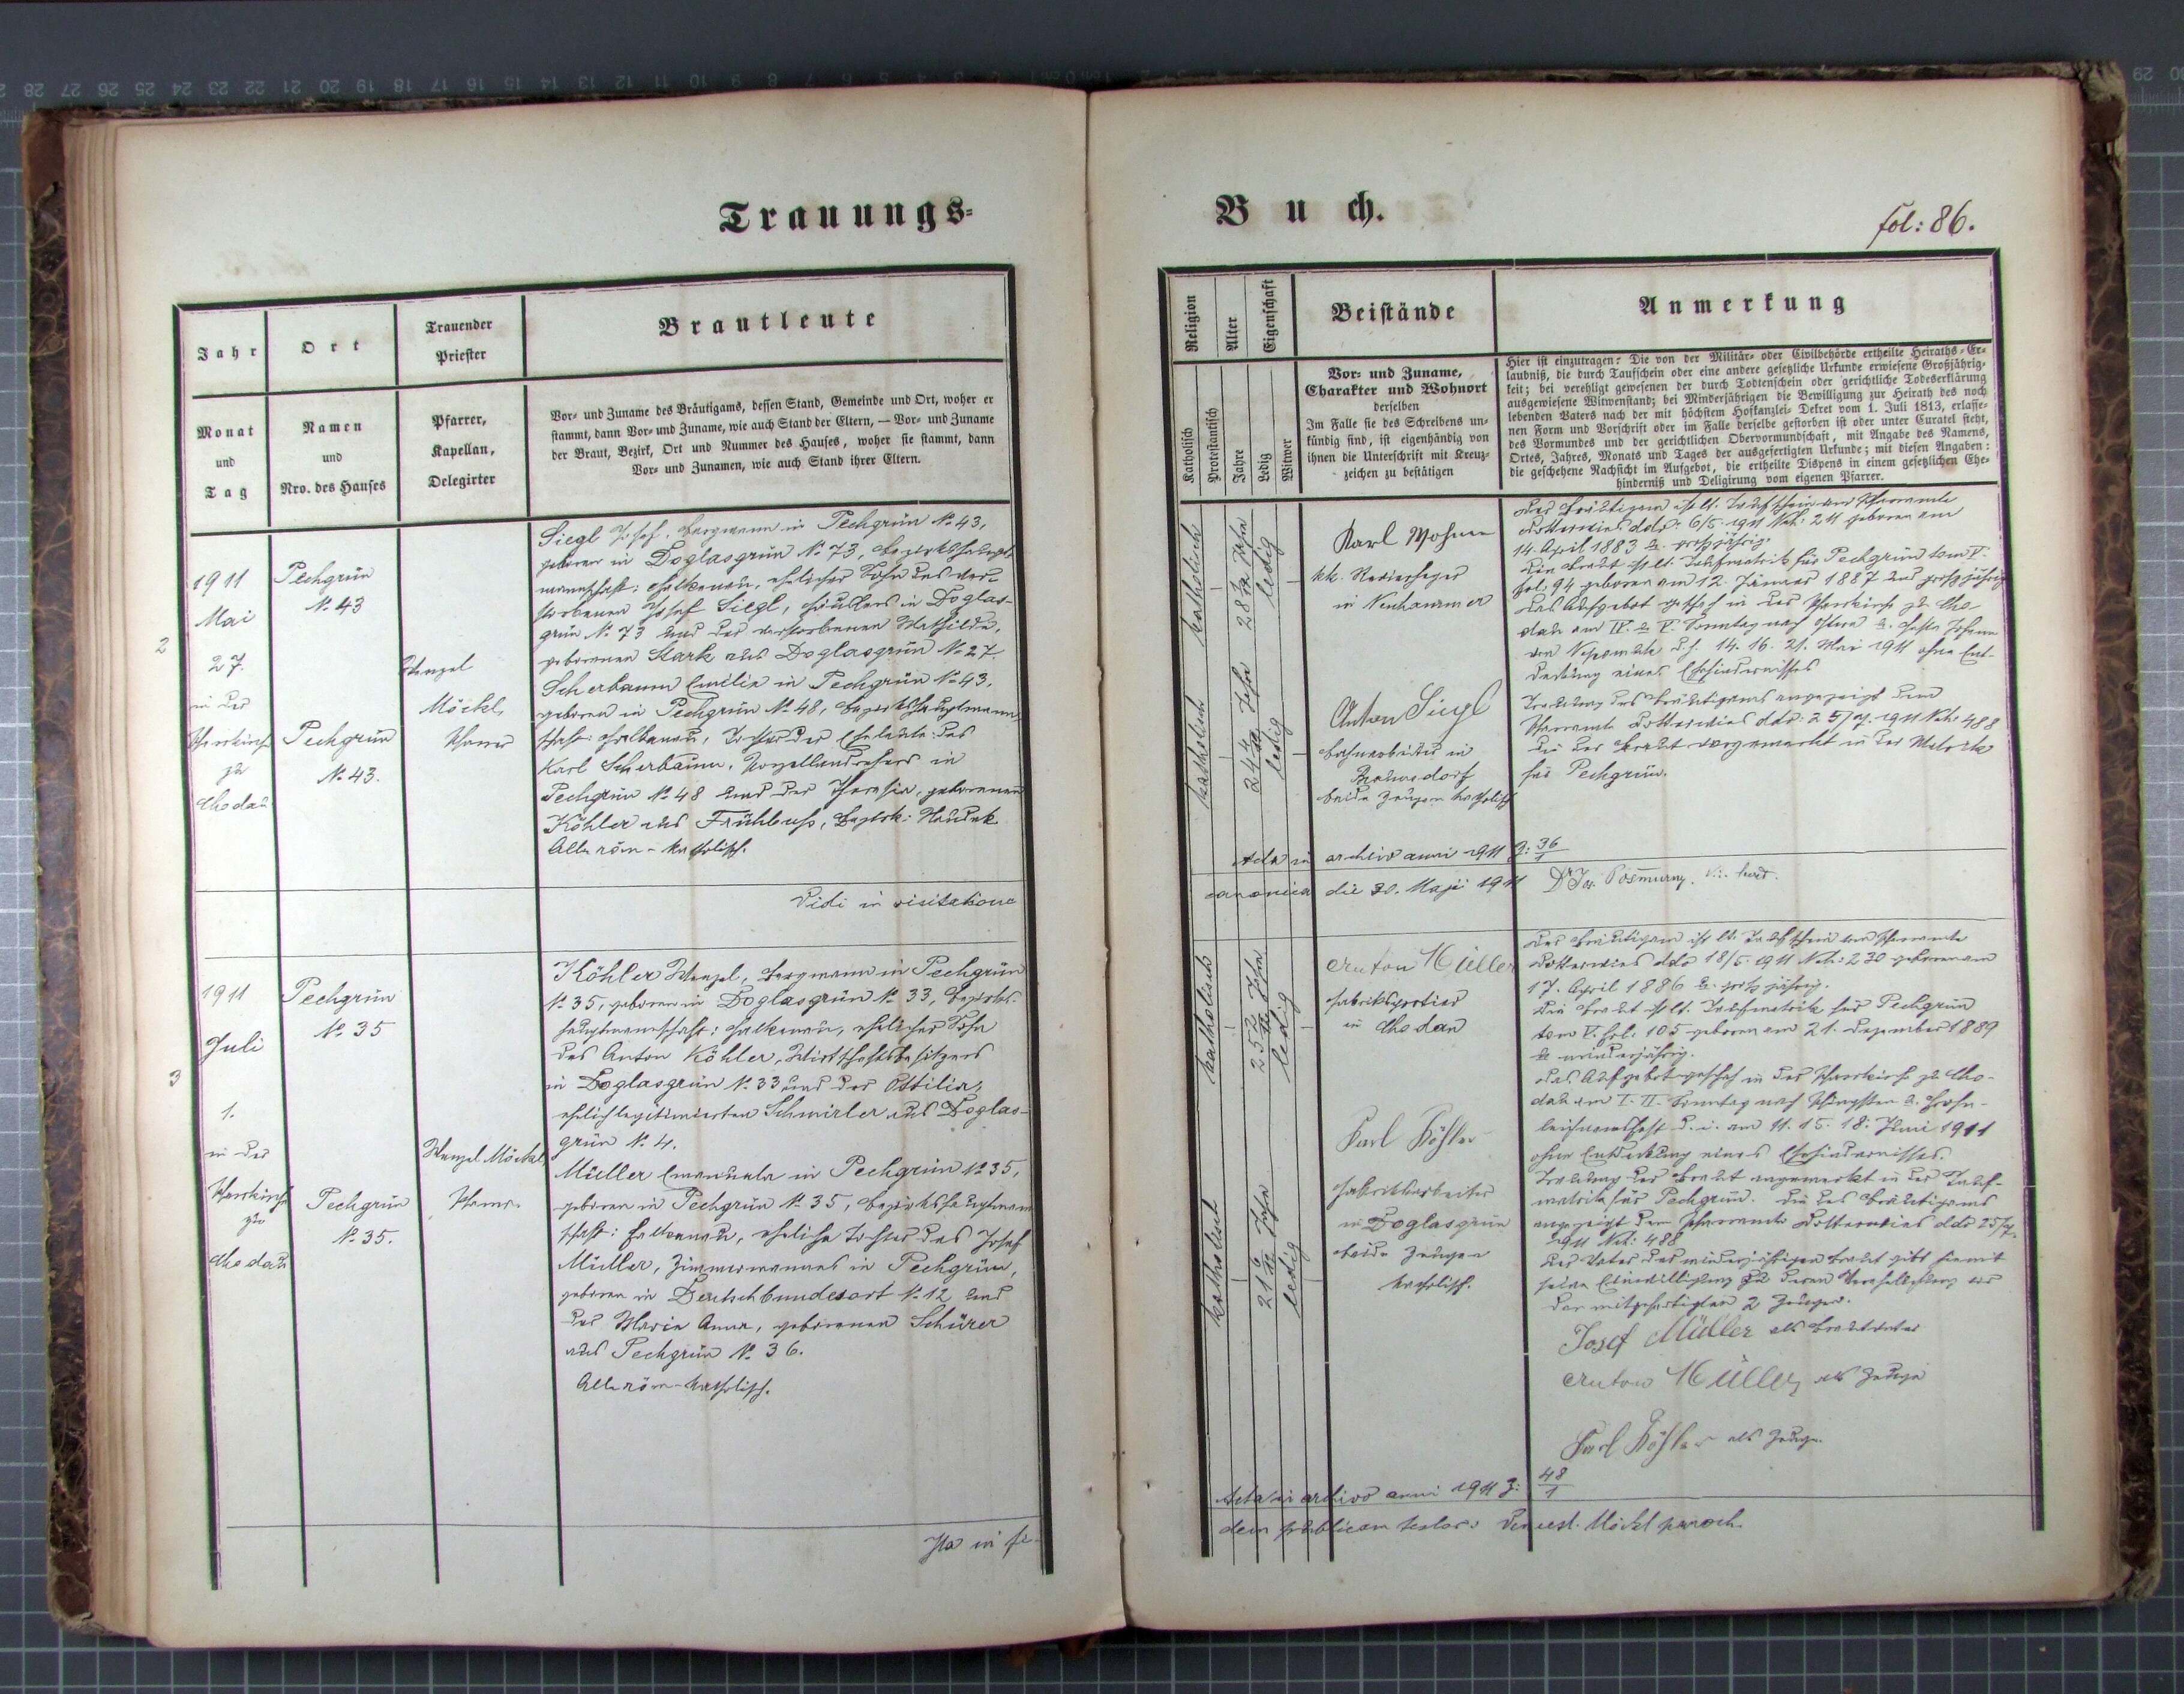 Trauungs-
Jahr
Monat
und
Tag
Ort
Namen
und
Nro. des Hauses
Trauender
Priester
Pfarrer,
Kapellan,
Delegirter
Brautleute
Vor- und Zuname des Bräutigams, dessen Stand, Gemeinde und Ort, woher er
stammt, dann Vor- und Zuname, wie auch Stand der Eltern, — Vor- und Zuname
der Braut, Bezirk, Ort und Nummer des Hauses, woher sie stammt, dann
Vor- und Zunamen, wie auch Stand ihrer Eltern.
2
1911
Mai
27.
in der
Pfarrkirche
zu
Chodau
Pechgrün
№ 43
Pechgrün
№ 43.
Wenzel
Möckl,
Pfarrer
Siegl Josef, Bergmann in Pechgrün № 43,
geboren in Doglasgrün № 73, Bezirkshaupt-
mannschaft: Falkenau, ehelicher Sohn des ver-
storbenen Josef Siegl, Häuslers in Doglas-
grün № 73 und der verstorbenen Mathilde,
geborenen Stark aus Doglasgrün № 27.
Scherbaum Emilie in Pechgrün № 43,
geboren in Pechgrün № 48, Bezirkshauptmann-
schaft: Falkenau, Tochter der Eheleute: des
Karl Scherbaum, Porzellandrehers in
Pechgrün № 48 und der Theresia, geborenen
Köhler aus Frühbuss, Bezirk: Neudek
Alle röm-katholisch.
Vidi in visitatione
3
1911
Juli
1.
in der
Pfarrkirche
zu
Chodau
Pechgrün
№ 35
Pechgrün
№ 35.
Wenzel Möckl,
Pfarrer
Köhler Wenzel, Bergmann in Pechgrün
№ 35, geboren in Doglasgrün № 33, Bezirks-
hauptmannschaft: Falkenau, ehelicher Sohn
des Anton Köhler, Wirtschaftsbesitzers
in Doglasgrün № 33 und der Ottilia,
ehelich legitimierten Schmirler aus Doglas-
grün № 4.
Müller Emanuela in Pechgrün № 35,
geboren in Pechgrün № 35, Bezirkshauptmann-
schaft: Falkenau, eheliche Tochter des Josef
Müller, Zimmermannes in Pechgrün,
geboren in Deutschbundesort № 12 und
der Maria Anna, geborenen Schürer
aus Pechgrün № 36.
Alle röm-katholisch.
Ita in fi-
Buch.
fol: 86.
Religion
Alter
Eigenschaft
Katholisch
Protestantisch
Jahre
Ledig
Witwer
Beistände
Vor- und Zuname,
Charakter und Wohnort
derselben
Im Falle sie des Schreibens un-
kündig sind, ist eigenhändig von
ihnen die Unterschrift mit Kreuz-
zeichen zu bestätigen
Anmerkung
Hier ist einzutragen: Die von der Militär- oder Civilbehörde ertheilte Heiraths-Er-
laubniß, die durch Taufschein oder eine andere gesetzliche Urkunde erwiesene Großjährig-
keit; bei verehligt gewesenen der durch Todtenschein oder gerichtliche Todeserklärung
ausgewiesene Witwenstand; bei Minderjährigen die Bewilligung zur Heirath des noch
lebenden Vaters nach der mit höchstem Hofkanzlei- Dekret vom 1. Juli 1813, erlasse-
nen Form und Vorschrift oder im Falle derselbe gestorben ist oder unter Curatel steht,
des Vormundes und der gerichtlichen Obervormundschaft, mit Angabe des Namens,
Ortes, Jahres, Monats und Tages der ausgefertigten Urkunde; mit diesen Angaben:
die geschehene Nachsicht im Aufgebot, die ertheilte Dispens in einem gesetzlichen Ehe-
hinderniß und Deligirung vom eigenen Pfarrer.
katholisch
ledig
katholisch
ledig
Karl
kk. Revierheger
in Neuhammer
Anton Siegl
Bahnarbeiter in
beide Zeugen katholisch
Der Bräutigam ist lt. Taufschein vom Pfarramte
Dotterwies ddo: 6/5. 1911 Nch: 211 geboren am
14. April 1883 u. großjährig.
Die Braut ist lt. Taufmatrik für Pechgrün tom V.
fol. 94 geboren am 12. Jänner 1887 und großjährig
Das Aufgebot geschah in der Pfarrkirche zu Cho-
dau am IV. u. V. Sonntag nach Ostern u. Feste Johann
von Nepomuk d. i. 14. 16. 21. Mai 1911 ohne Ent-
deckung eines Ehehindernisses
Trauung des Bräutigams angezeigt dem
Pfarramte Dotterwies 1911 Nch: 488
Die der Braut vorgemerkt in der Matrik
für Pechgrün.
Acta in archivo anni 1911 Z: 36/1
canonica die 30. Maji 1911
katholisch
ledig
katholisch
ledig
Anton Müller
Fabriksportier
in Chodau
Karl Köhler
Fabriksarbeiter
in Doglasgrün
beide Zeugen
katholisch.
Der Bräutigam ist lt. Taufschein vom Pfarramte
Dotterwies ddo 18/5. 1911 Nch: 230 geboren am
17. April 1886 u. großjährig.
Die Braut ist lt. Taufmatrik für Pechgrün
tom V. fol. 105 geboren am 21. Dezember 1889
u. minderjährig.
Das Aufgebot geschah in der Pfarrkirche zu Cho-
dau am I. II. Sonntag nach Pfingsten u. Frohn-
leichnamsfest d. i. am 11. 15. 18. Juni 1911
ohne Entdeckung eines Ehehindernisses.
Trauung der Braut angemerkt in der Tauf-
matrik für Pechgrün. Die des Bräutigams
angezeigt dem Pfarramte Dotterwies
1911 Nch: 488
Der Vater der minderjährigen Braut gibt hiemit
seine Einwilligung zu deren Verehelichung vor
den mitgefertigten 2 Zeugen.
Josef Müller als Brautvater
Anton Müller als Zeuge
Karl Köhler als Zeuge
Acta in archivo anni 1911 Z: 48/1
dem publicam testor: Möckl paroch.